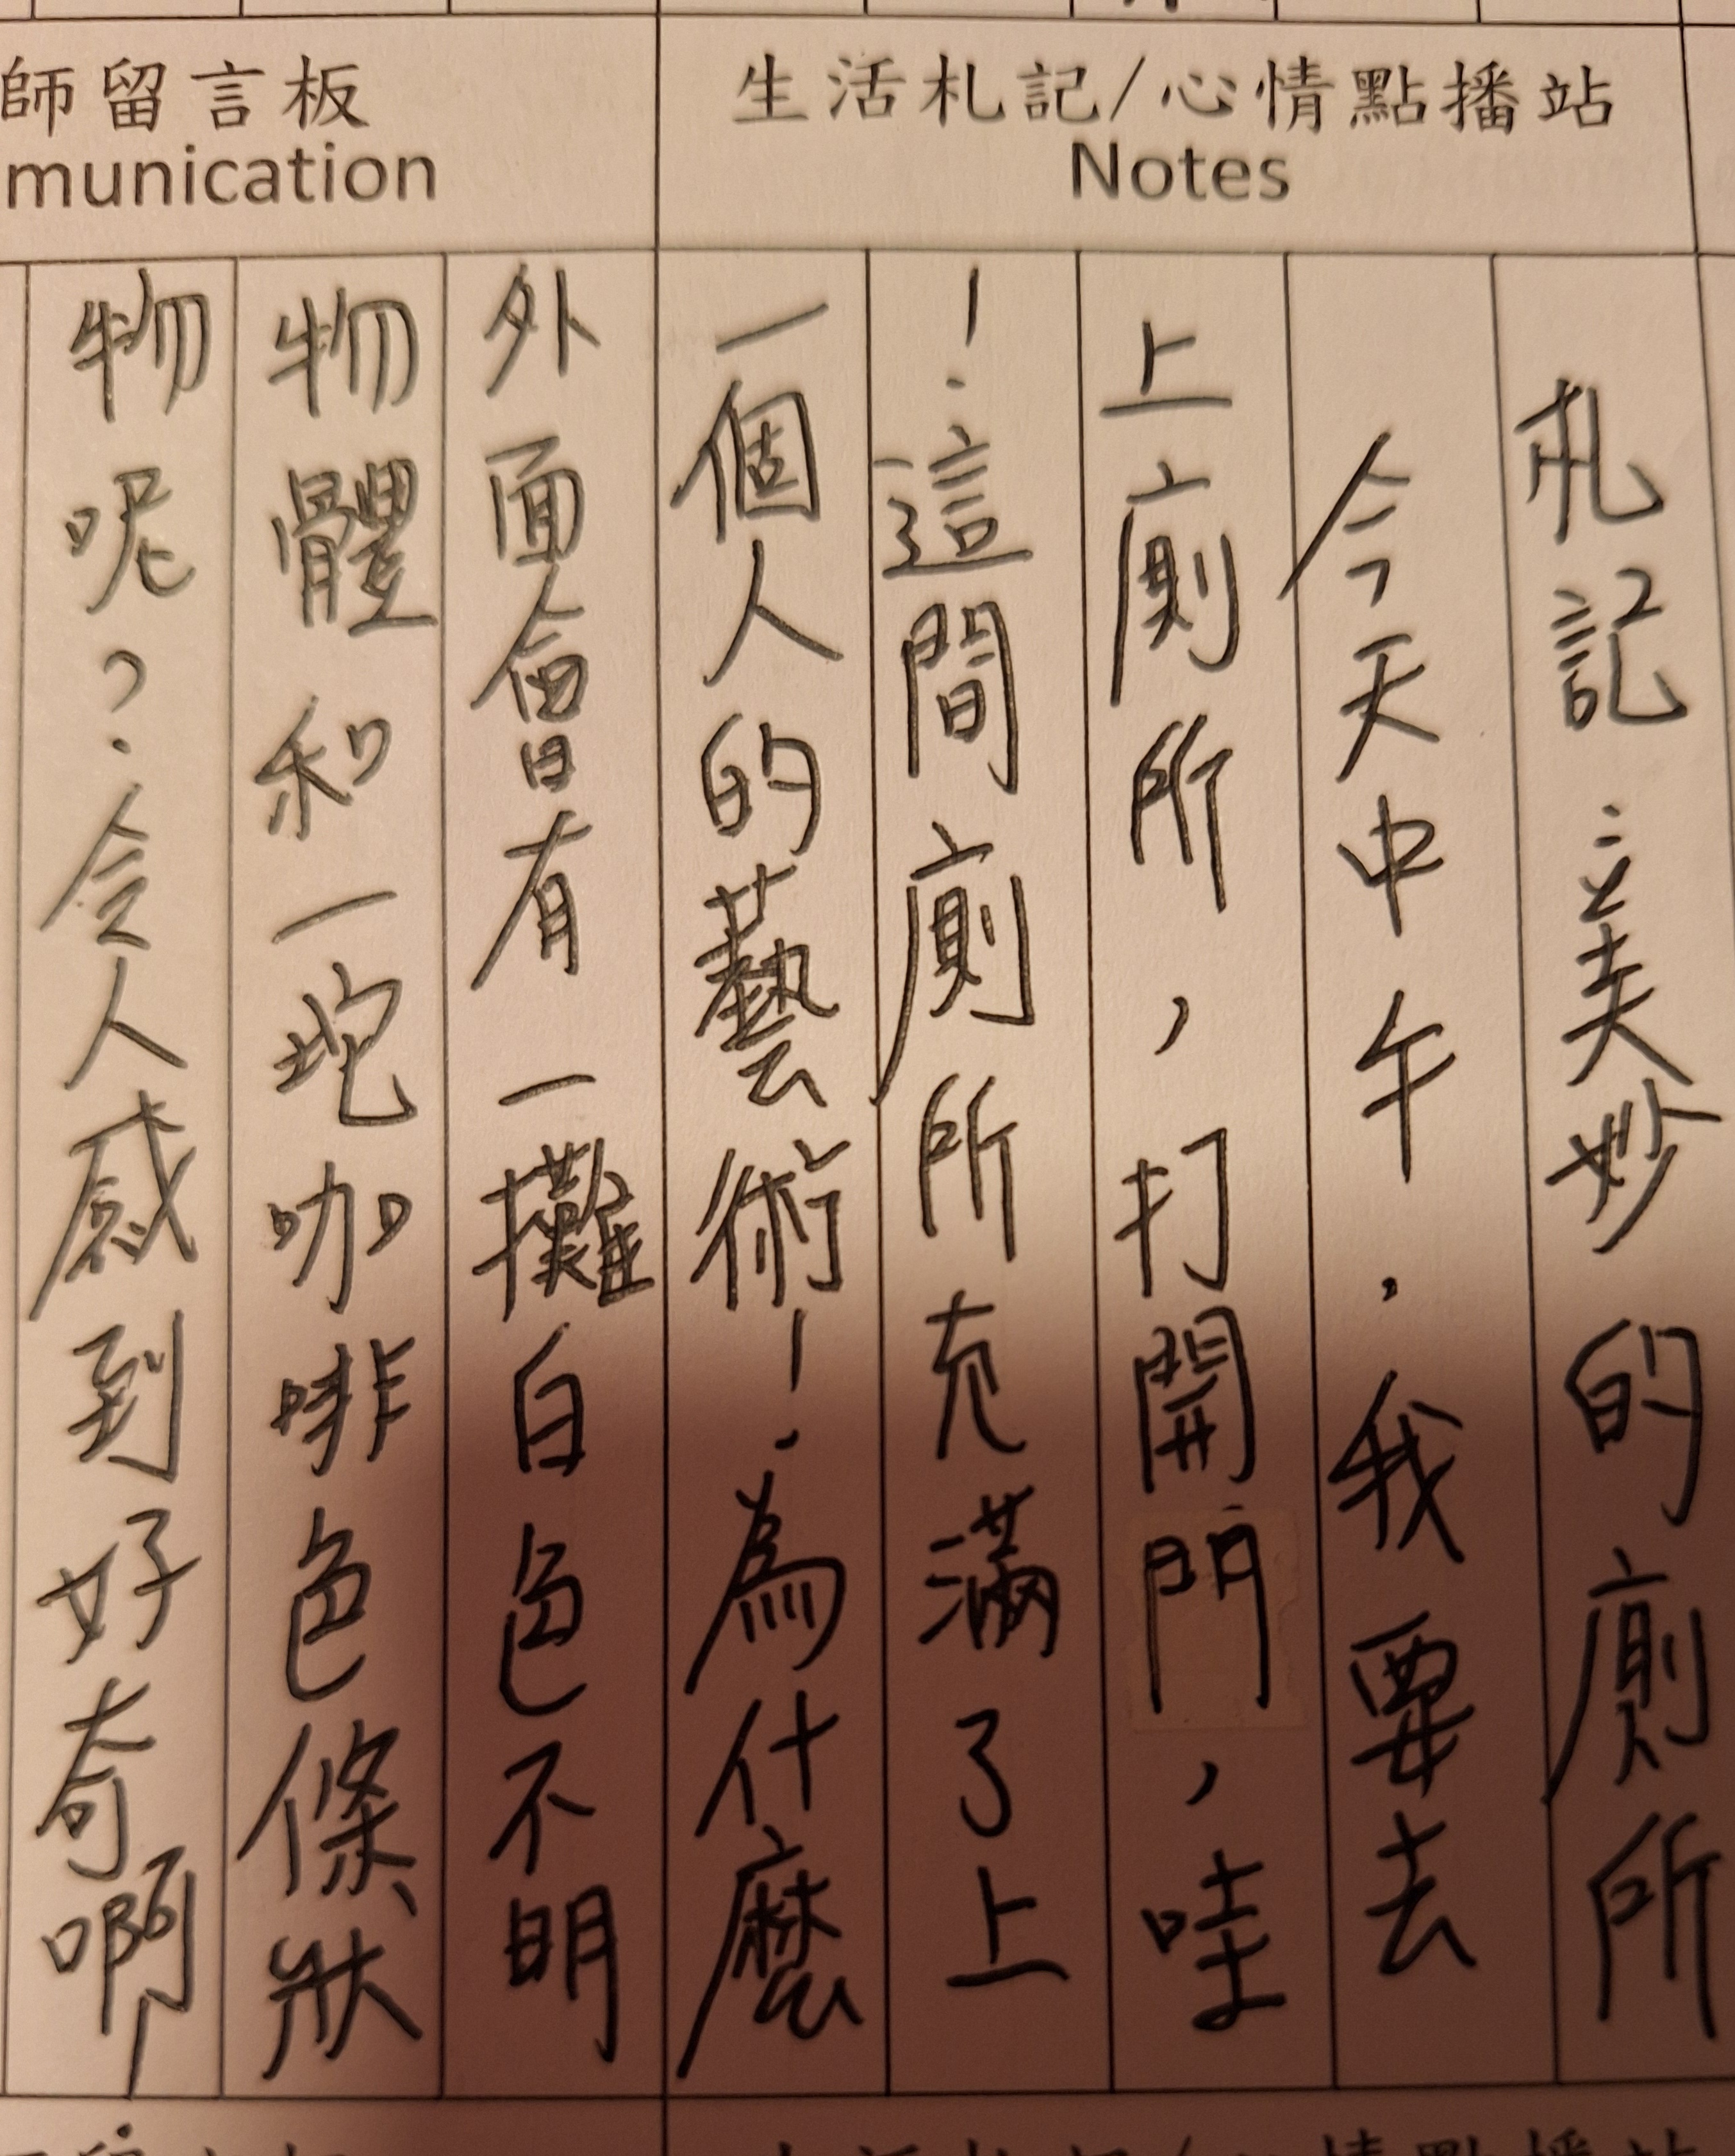 師留言板
munication
生活札記/心情點播站
Notes
札記:美妙的廁所
今天中午,我要去
上廁所,打開門,哇
!這間廁所充滿了上
一個人的藝術!為什麼
外面會有一攤白色不明
物體和一坨咖啡色條狀
物呢?令人感到好奇啊!